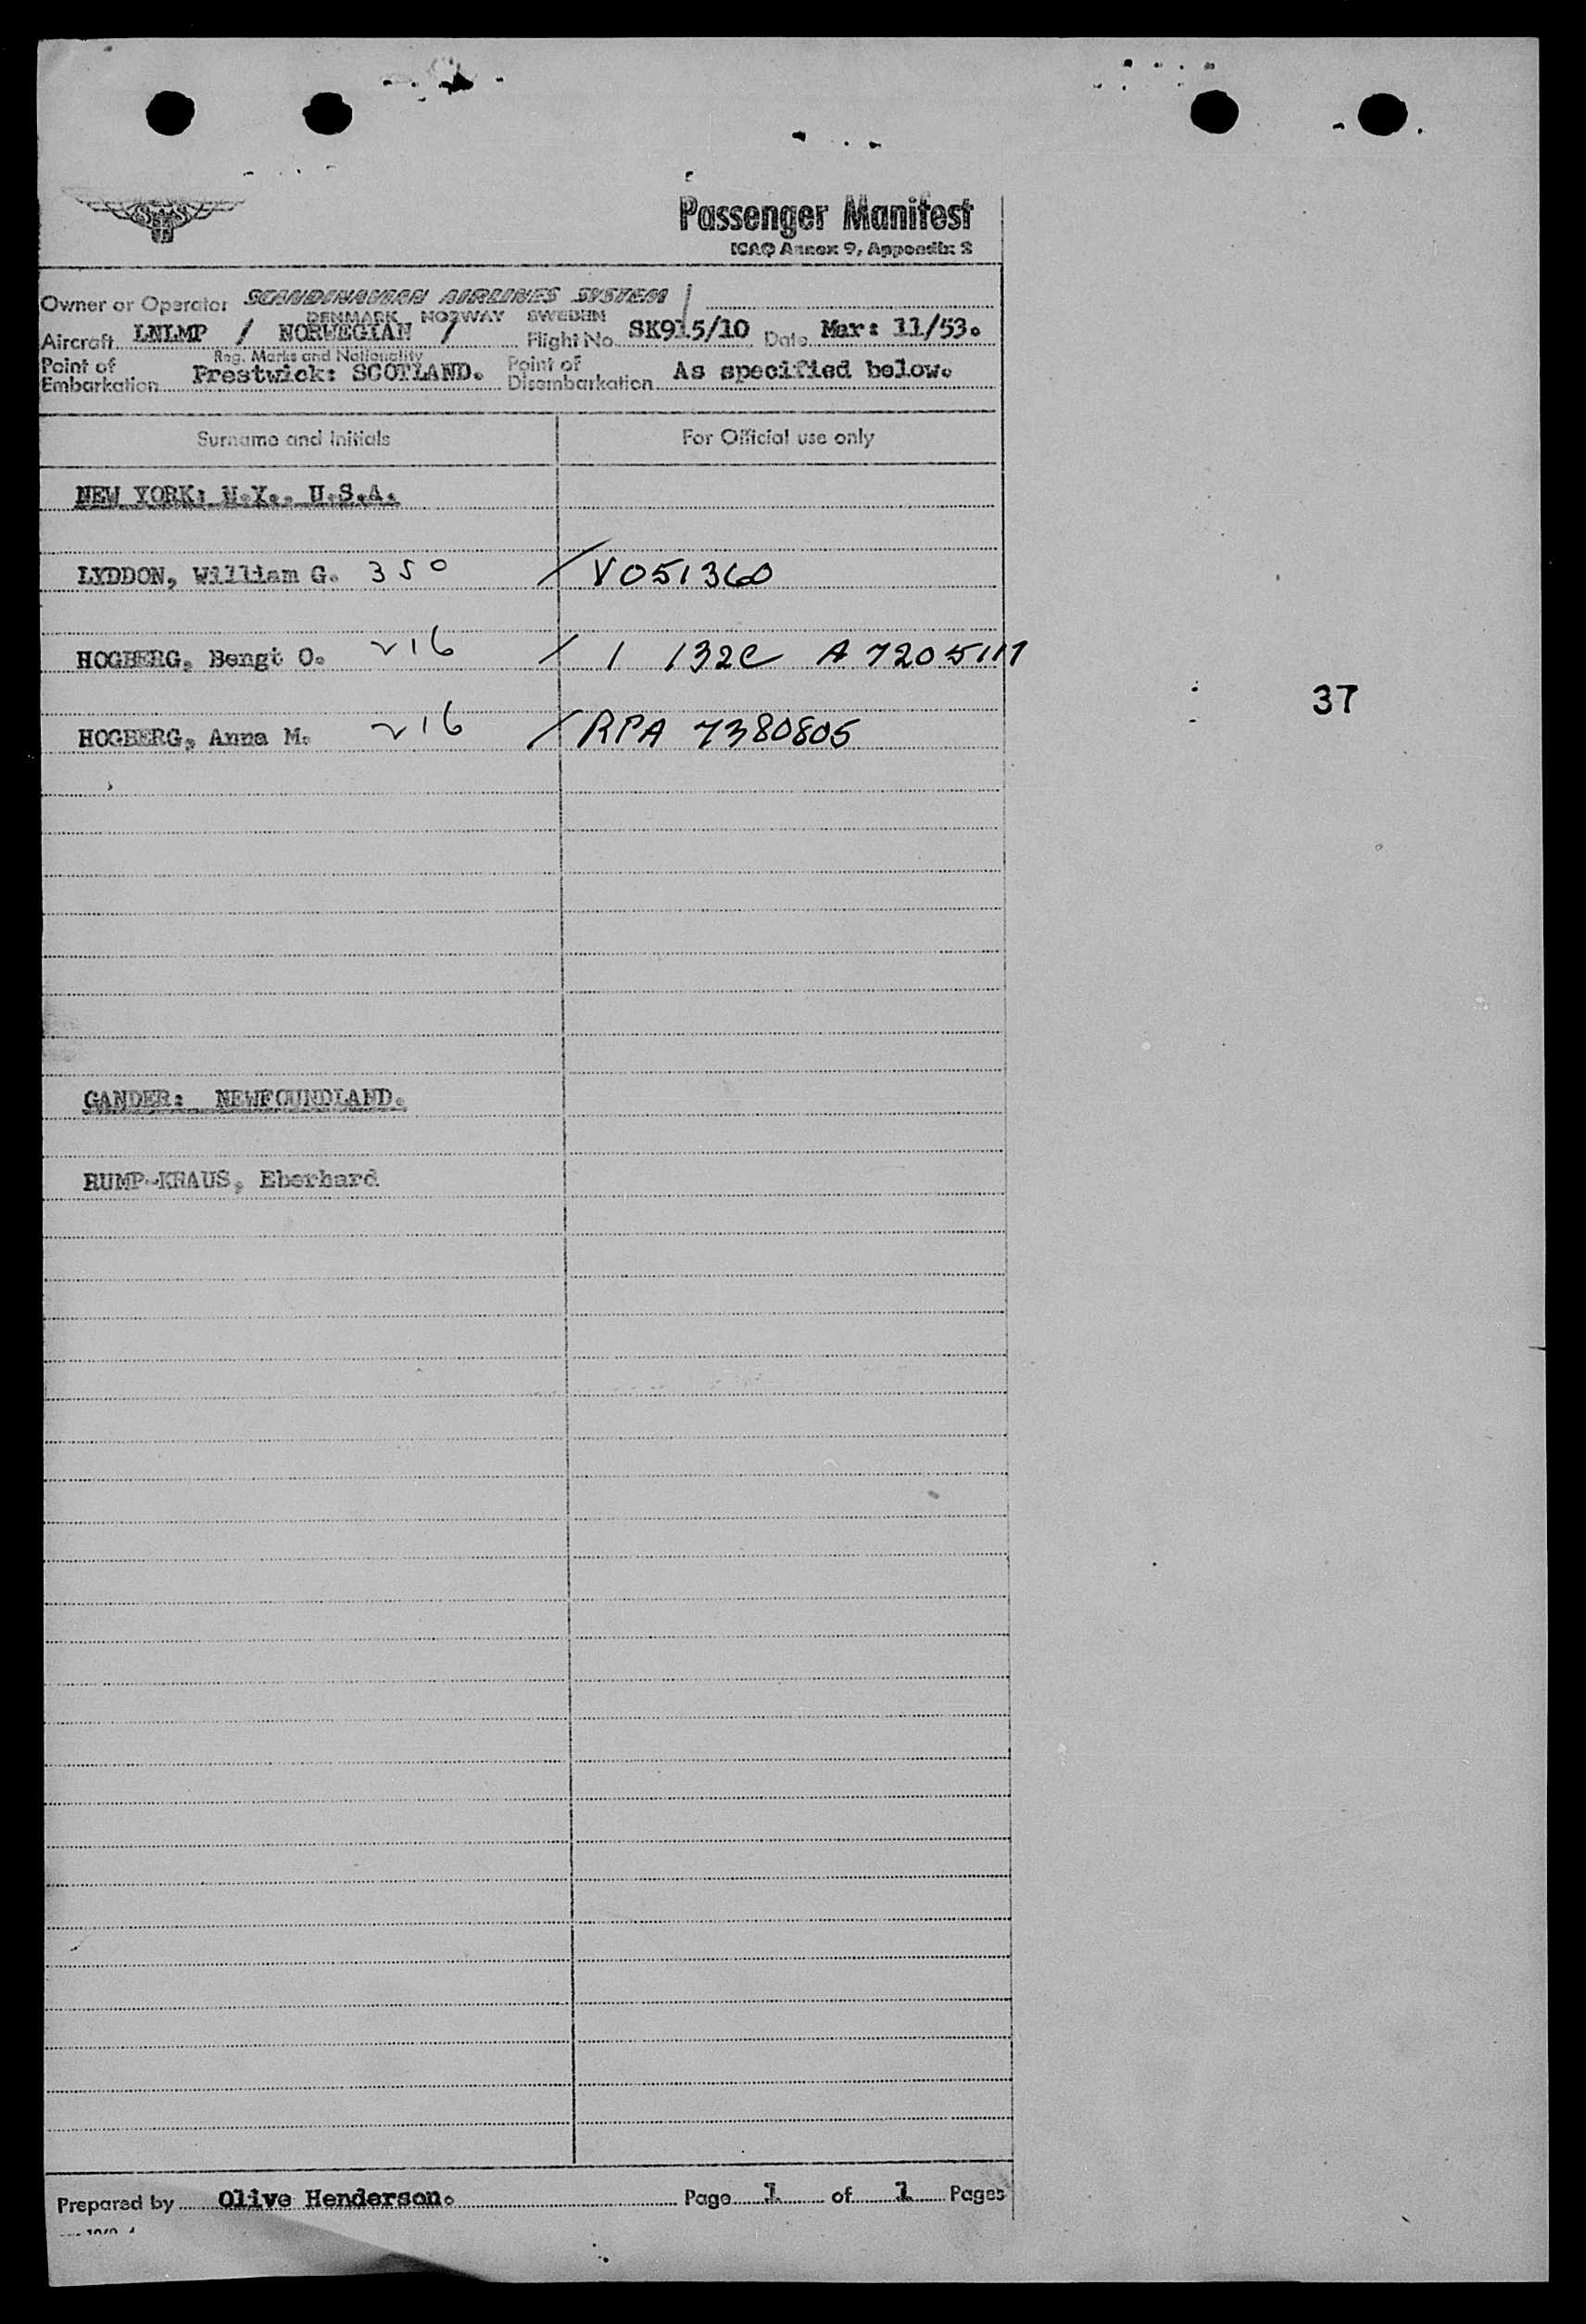 SAS
Passenger Manifest
ICAO Annex 9, Appendix 2
Owner or Operator SCANDINAVIAN AIRLINES SYSTEM /
DENMARK NORWAY SWEDEN
Aircraft LNLMP / NORWEGIAN / Flight No. SK915/10 Date Mar: 11/53.
Reg. Marks and Nationality
Point of Embarkation Prestwick: SCOTLAND. Point of Disembarkation As specified below.
Surname and Initials For Official use only
NEW YORK: N.Y., U.S.A.
LYDDON, William G. 350 / V051360
HOGBERG, Bengt O. 216 / 1 132C A 7205117
37
HOGBERG, Anna M. 216 / RPA 7380805
GANDER: NEWFOUNDLAND.
RUMP-KRAUS, Eberhard
Prepared by Olive Henderson. Page 1 of 1 Pages